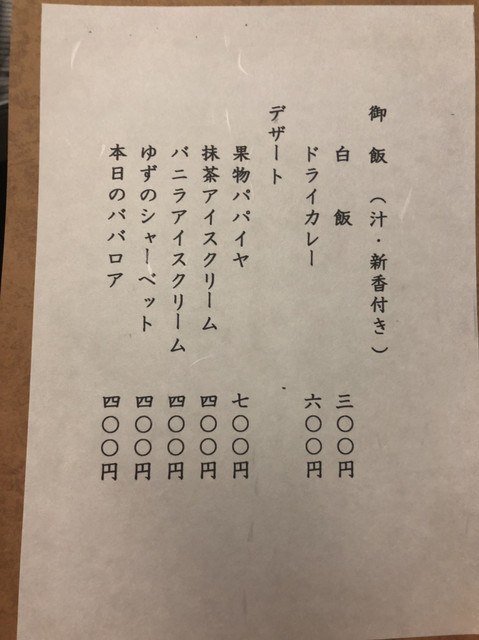 御飯(汁・新香付き)
白飯 三〇〇円
ドライカレー 六〇〇円
デザート
果物パパイヤ 七〇〇円
抹茶アイスクリーム 四〇〇円
バニラアイスクリーム 四〇〇円
ゆずのシャーベット 四〇〇円
本日のババロア 四〇〇円